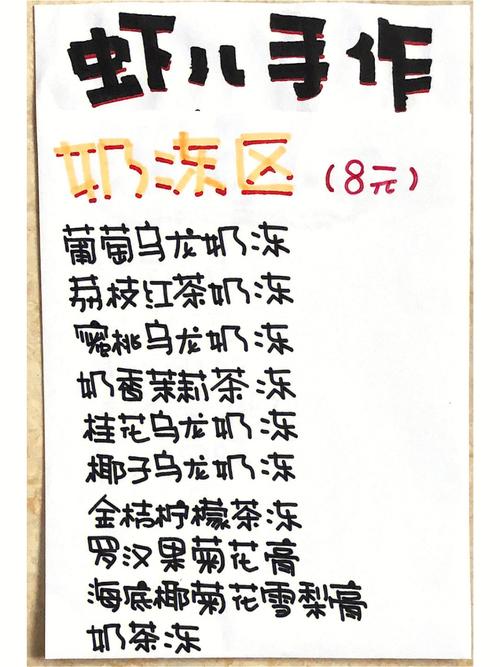 虾儿手作
奶冻区（8元）
葡萄乌龙奶冻
荔枝红茶奶冻
蜜桃乌龙奶冻
奶香茉莉茶冻
桂花乌龙奶冻
椰子乌龙奶冻
金桔柠檬茶冻
罗汉果菊花膏
海底椰菊花雪梨膏
奶茶冻